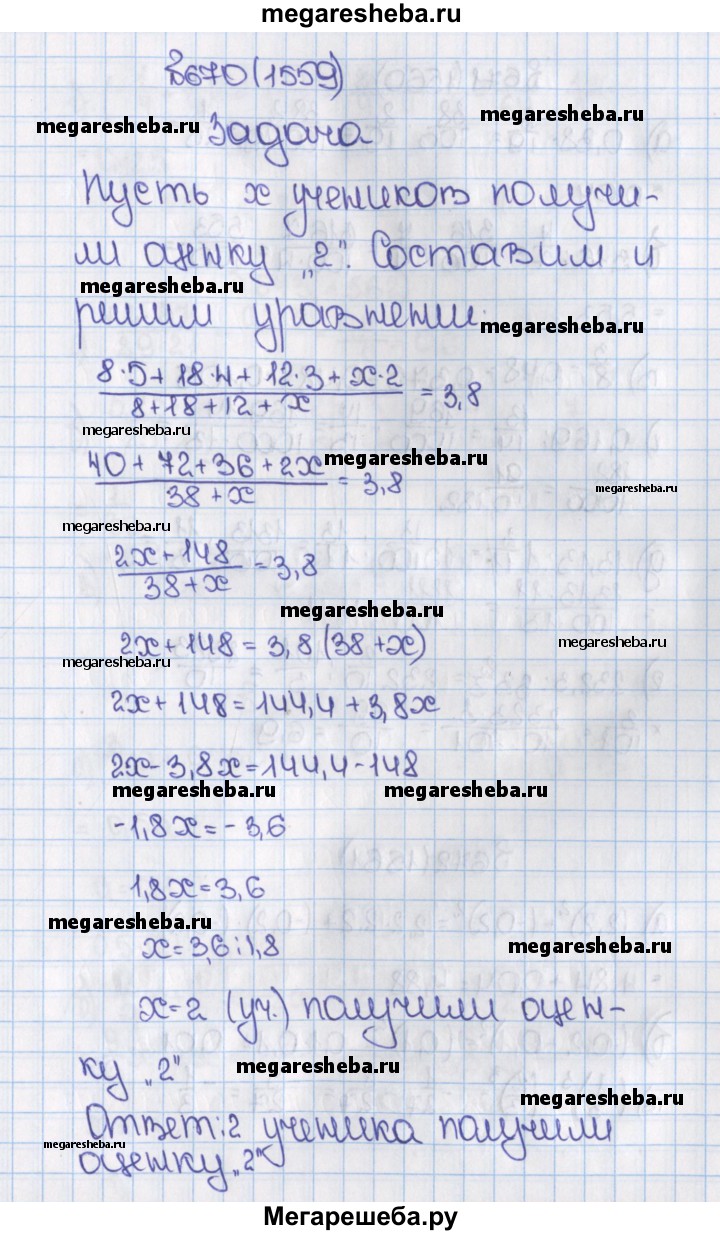 megaresheba.ru
В670 (1559)
megaresheba.ru
megaresheba.ru
Задача
Пусть x учеников получи-
ли оценку „2“. Составим и
megaresheba.ru
решим уравнении.
megaresheba.ru
8·5+18·4+12·3+x·2
8+18+12+x
= 3,8
megaresheba.ru
40+72+36+2x
megaresheba.ru
38+x
= 3,8
megaresheba.ru
megaresheba.ru
2x+148
38+x
= 3,8
megaresheba.ru
2x+148 = 3,8 (38+x)
megaresheba.ru
megaresheba.ru
2x+148 = 144,4 + 3,8x
2x-3,8x=144,4-148
megaresheba.ru
megaresheba.ru
-1,8x = -3,6
1,8x=3,6
megaresheba.ru
x=3,6:1,8
megaresheba.ru
x=2 (уч.) получили оцен-
ку „2“
megaresheba.ru
megaresheba.ru
Ответ: 2 ученика получили
megaresheba.ru
оценку „2“
Мегарешеба.ру